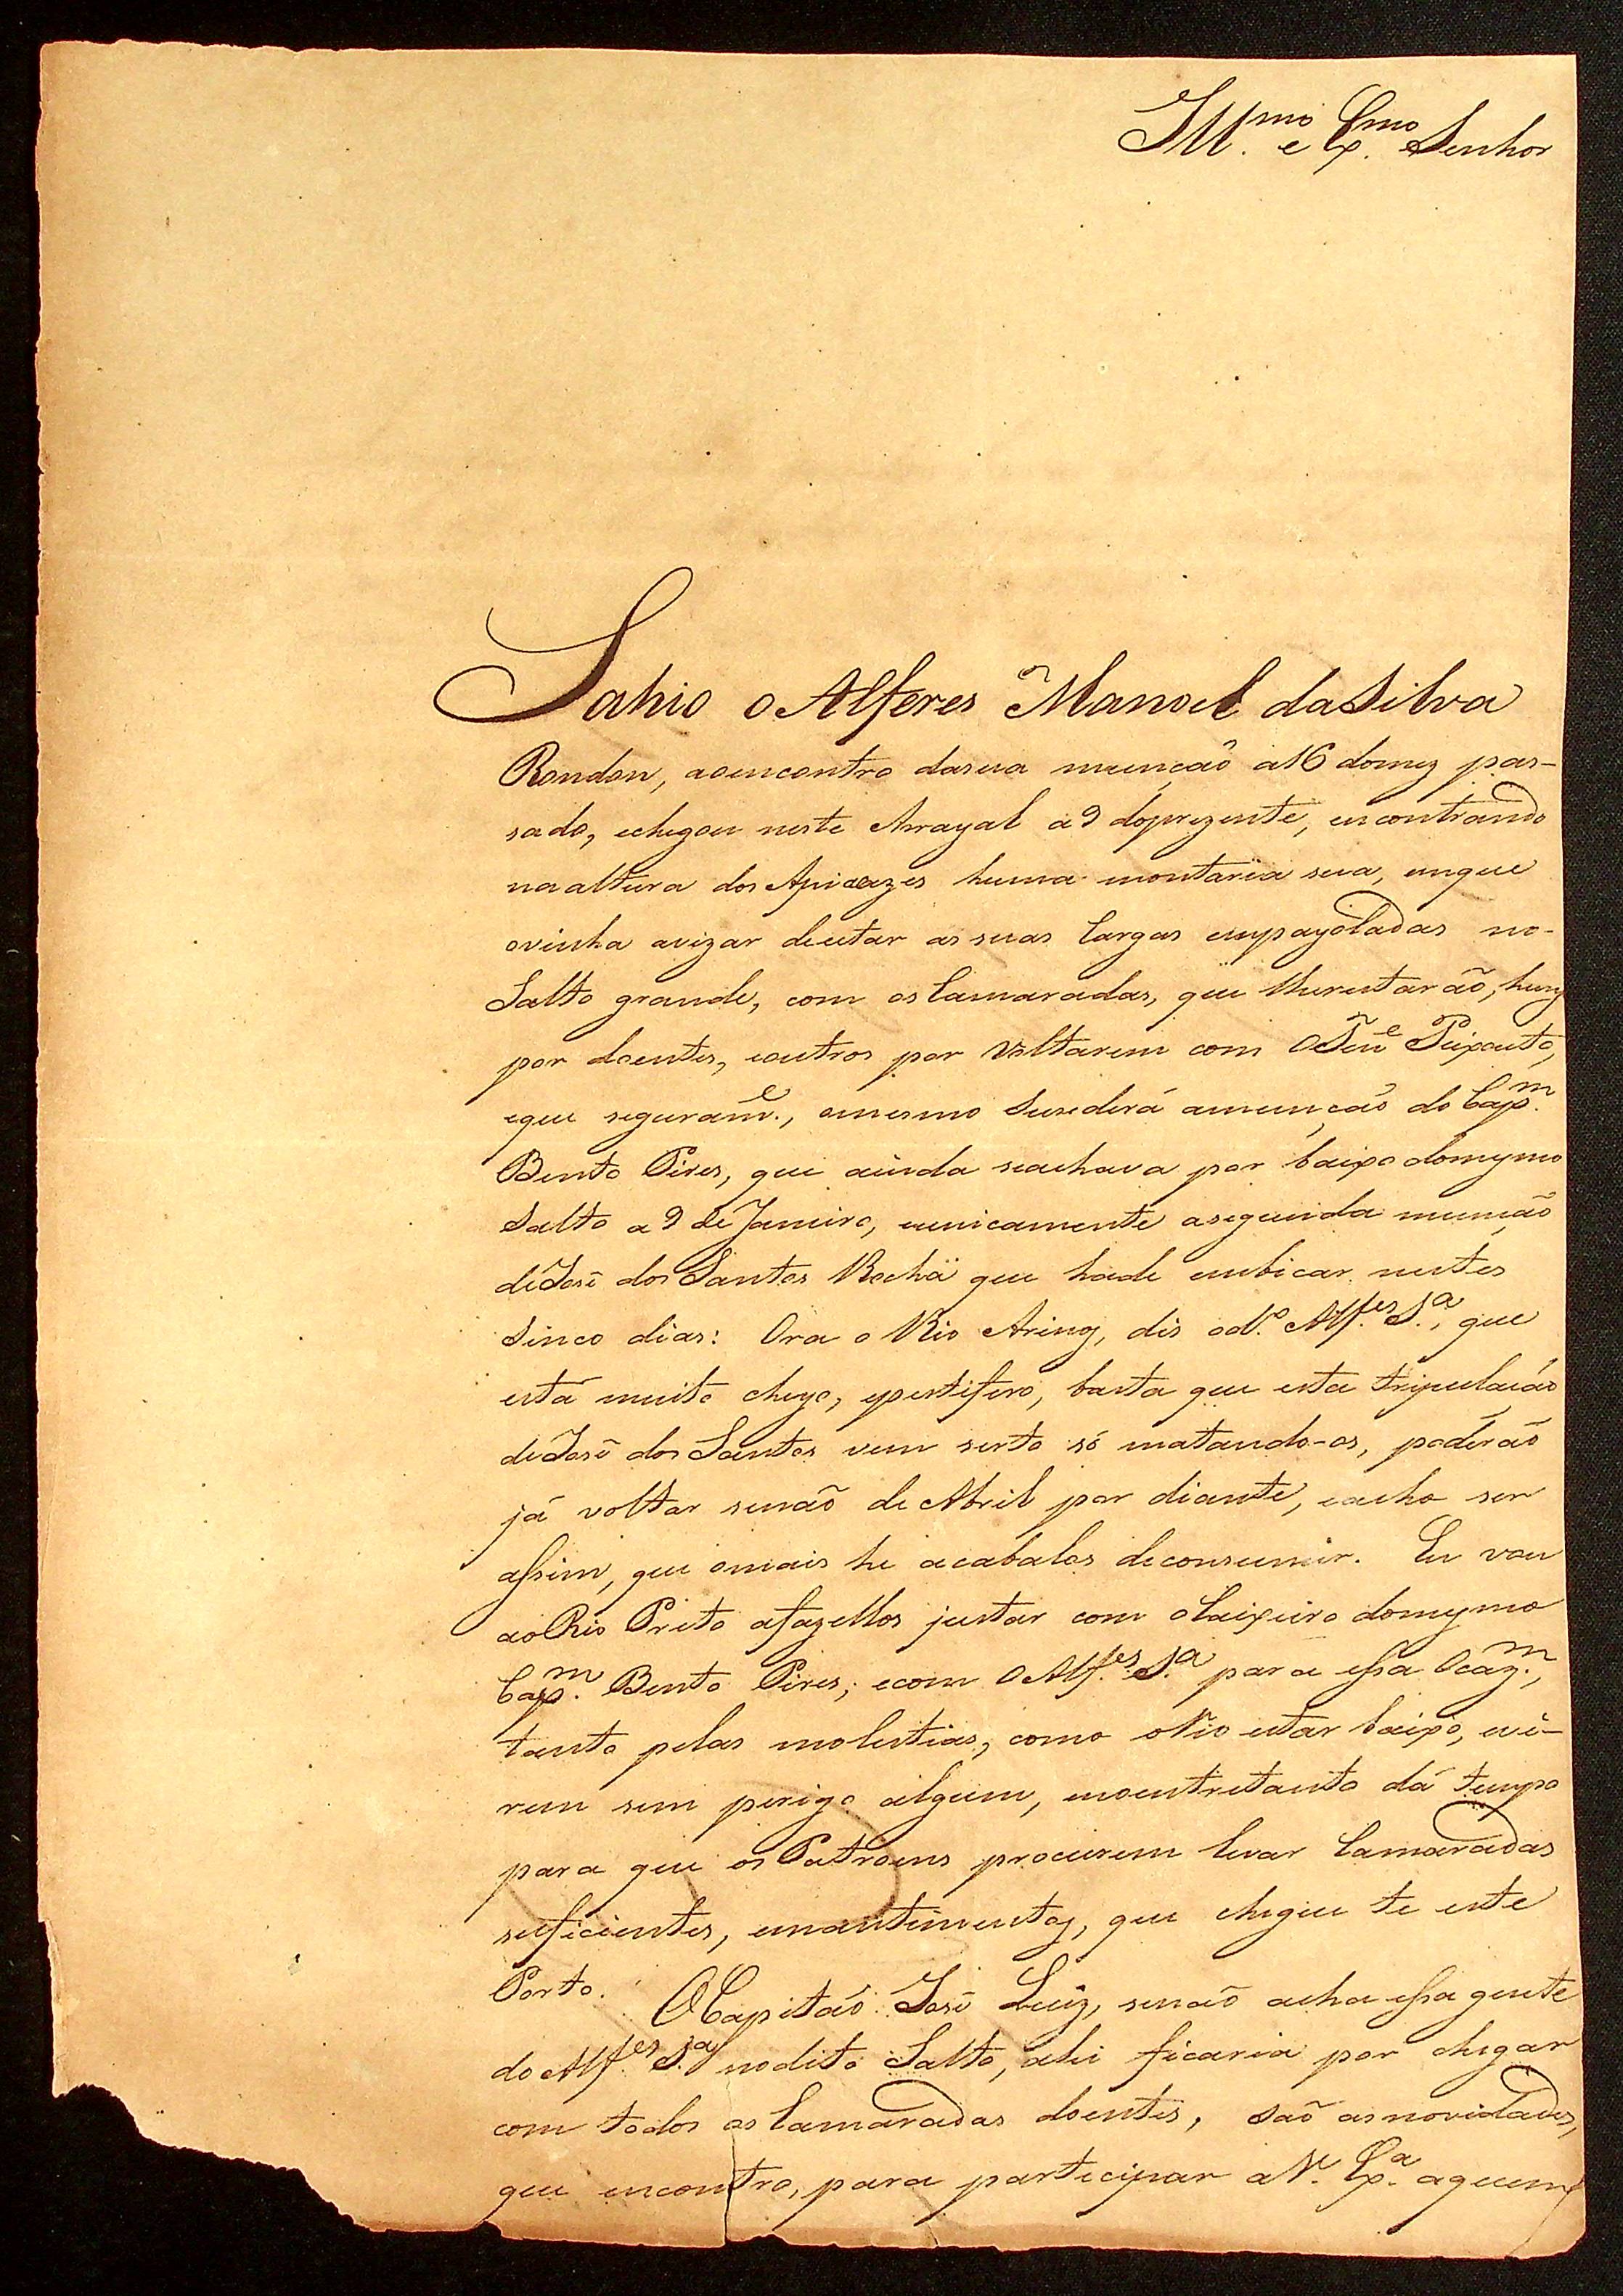 Ill.mo e Ex.mo Senhor
Sahio o Alferes Manoel da Silva
Rondon, aoencontro dasua munção a16 domez pas-
sado, echegou neste Arrayal a9 doprezente, encontrando
naaltura dos Apiacazes huma montaria sua, emque
ovinha avizar deestar as suas Cargas empayoladas no-
Salto grande, com os Camaradas, que lherestarão, huns
por doentes, eoutros por Voltarem com OTen.e Peixouto,
eque seguram.e, omesmo Susederá amunção do Cap.m
Bento Pires, que ainda seachava por baixo domesmo
Salto a 9 de Janeiro, eunicamente asegunda munção
deJosé dos Santos Rocha que hade embicar nestes
Sinco dias: Ora o Rio Arinoz, dis od.o Alf.es S.a, que
está muito cheyo, epestifero, basta que esta tripulação
deJosé dos Santos vem serto só matando-os, poderão
já voltar senão de Abril por diante, eacho ser
assim, que omais he acabalos deconsumir. Eu vou
aoRio Preto afazellos justar com oCaixeiro domesmo
Cap.m Bento Pires, ecom OAlf.es S.a para essa Ocaz.m,
tanto pelas molestias, como oRio estar baixo, evi-
rem sem perigo algum, enoentretanto dá tempo
para que os Patroens procurem levar Camaradas
suficientes, emantimentos, que chegue te este
Porto. OCapitão José Luiz, senão acha essa gente
do Alf.es S.a nodito Salto, ahi ficaria por chegar
com todos os Camaradas doentes, são asnovidades,
que encontro, para participar aV. Ex.a aquem